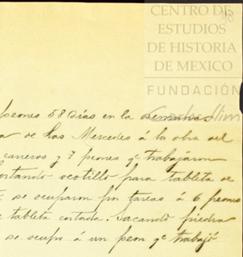 CENTRO DE
ESTUDIOS
DE HISTORIA
DE MEXICO
FUNDACIÓN
peones 58 Dias en la
de las Mercedes á la obra del
canteros y 7 peones qe trabajaron
cortando ocotillo para tableta se
se ocuparon sin tareas á 6 peones
tableta cortada. Sacando piedra
se ocupó á un peon qe trabajó